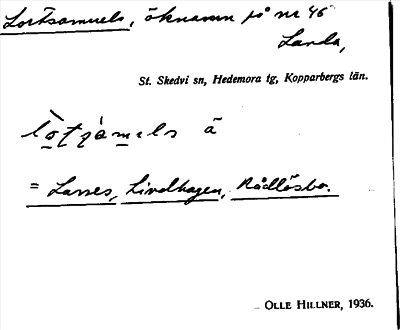 Lortsamuels, öknamn på nr 46
Landa,
St. Skedvi sn, Hedemora tg, Kopparbergs län.
= Lasses, Lindhagen, Rådlösbo.
OLLE HILLNER, 1936.